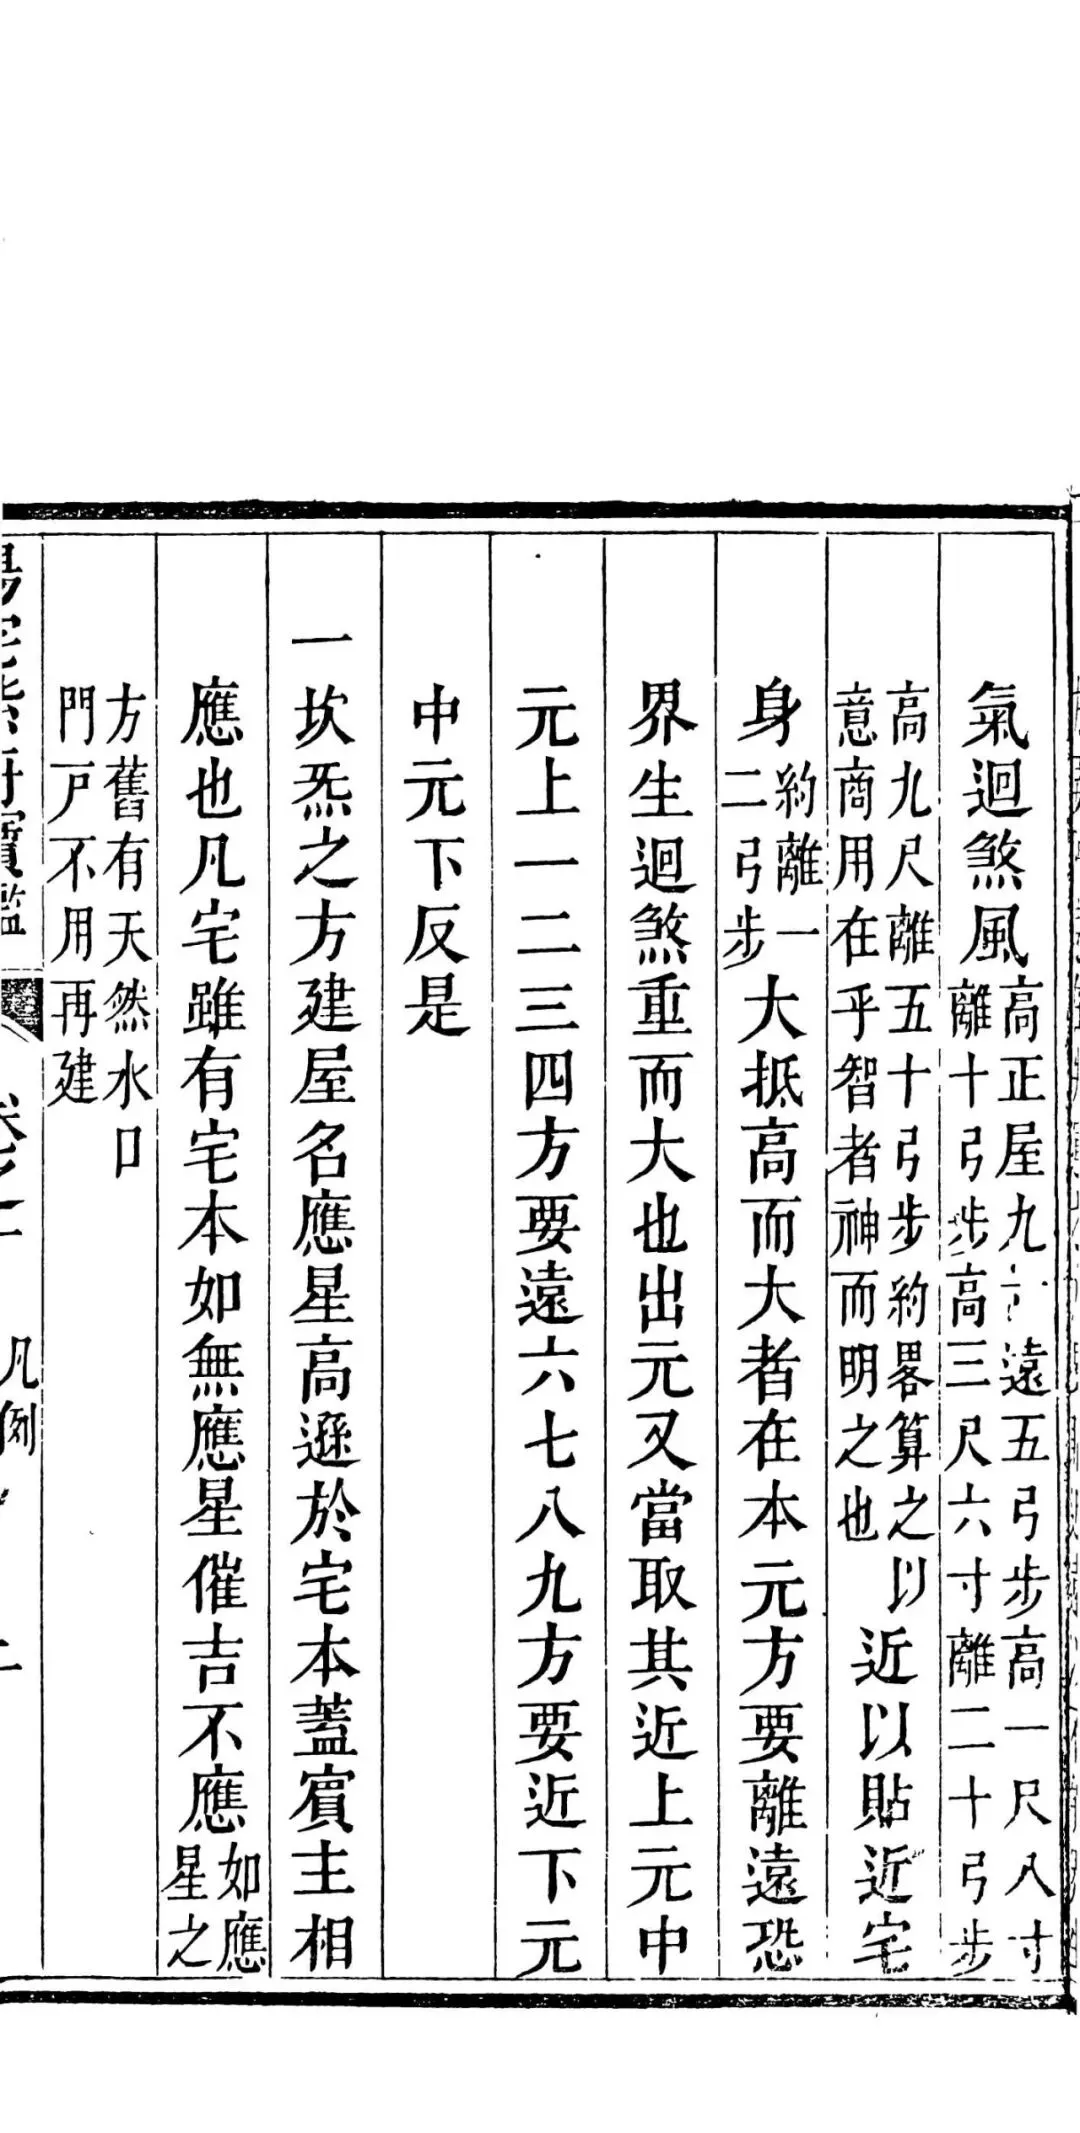 氣迴煞風高正屋九遠五弓步高一尺八寸離十弓步高三尺六寸離二十弓步
高九尺離五十弓步約畧算之以意商用在乎智者神而明之也近以貼近宅
身約離一二弓步大抵高而大者在本元方要離遠恐
界生迴煞重而大也出元又當取其近上元中
元上一二三四方要遠六七八九方要近下元
中元下反是
一坎炁之方建屋名應星高遜於宅本蓋賓主相
應也凡宅雖有宅本如無應星催吉不應如應星之
方舊有天然水口門戶不用再建
凡例